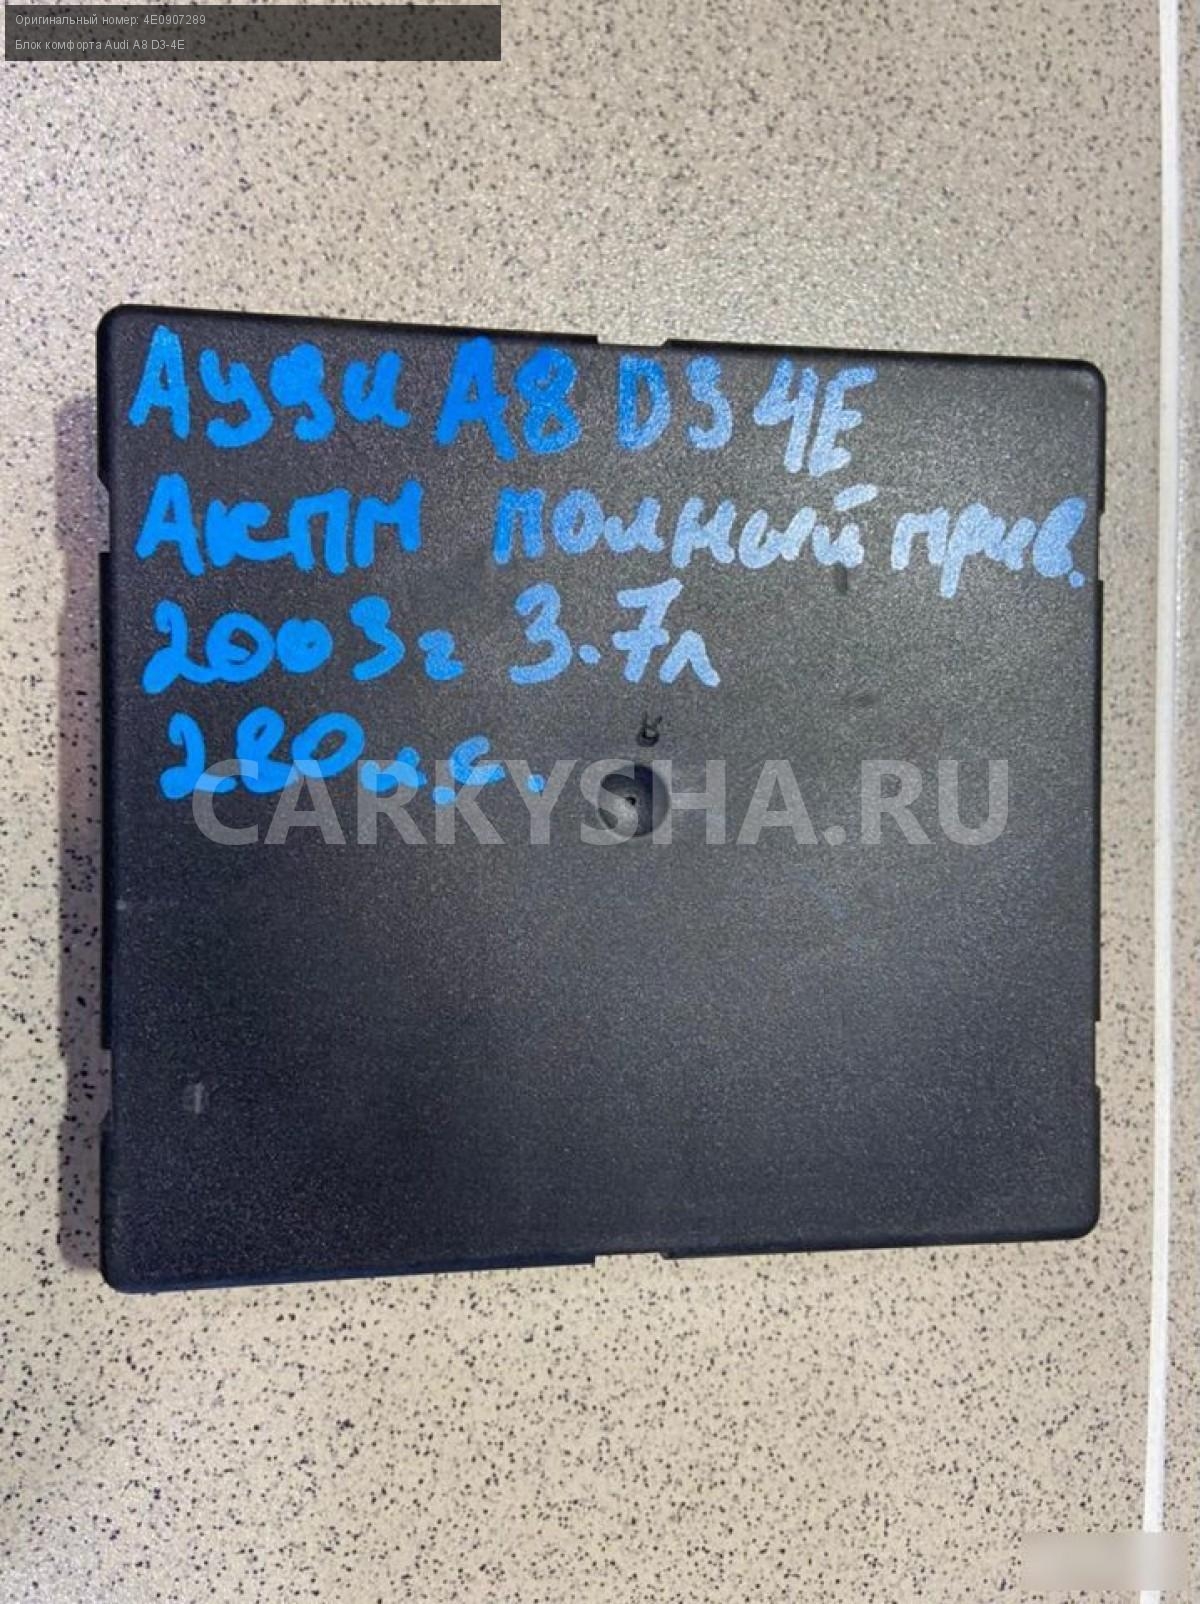 Оригинальный номер: 4E0907289
Блок комфорта Audi A8 D3-4E
Ауди А8 D3 4E
Акпп полный прив.
2003г 3.7л
280 л.с.
CARKYSHA.RU